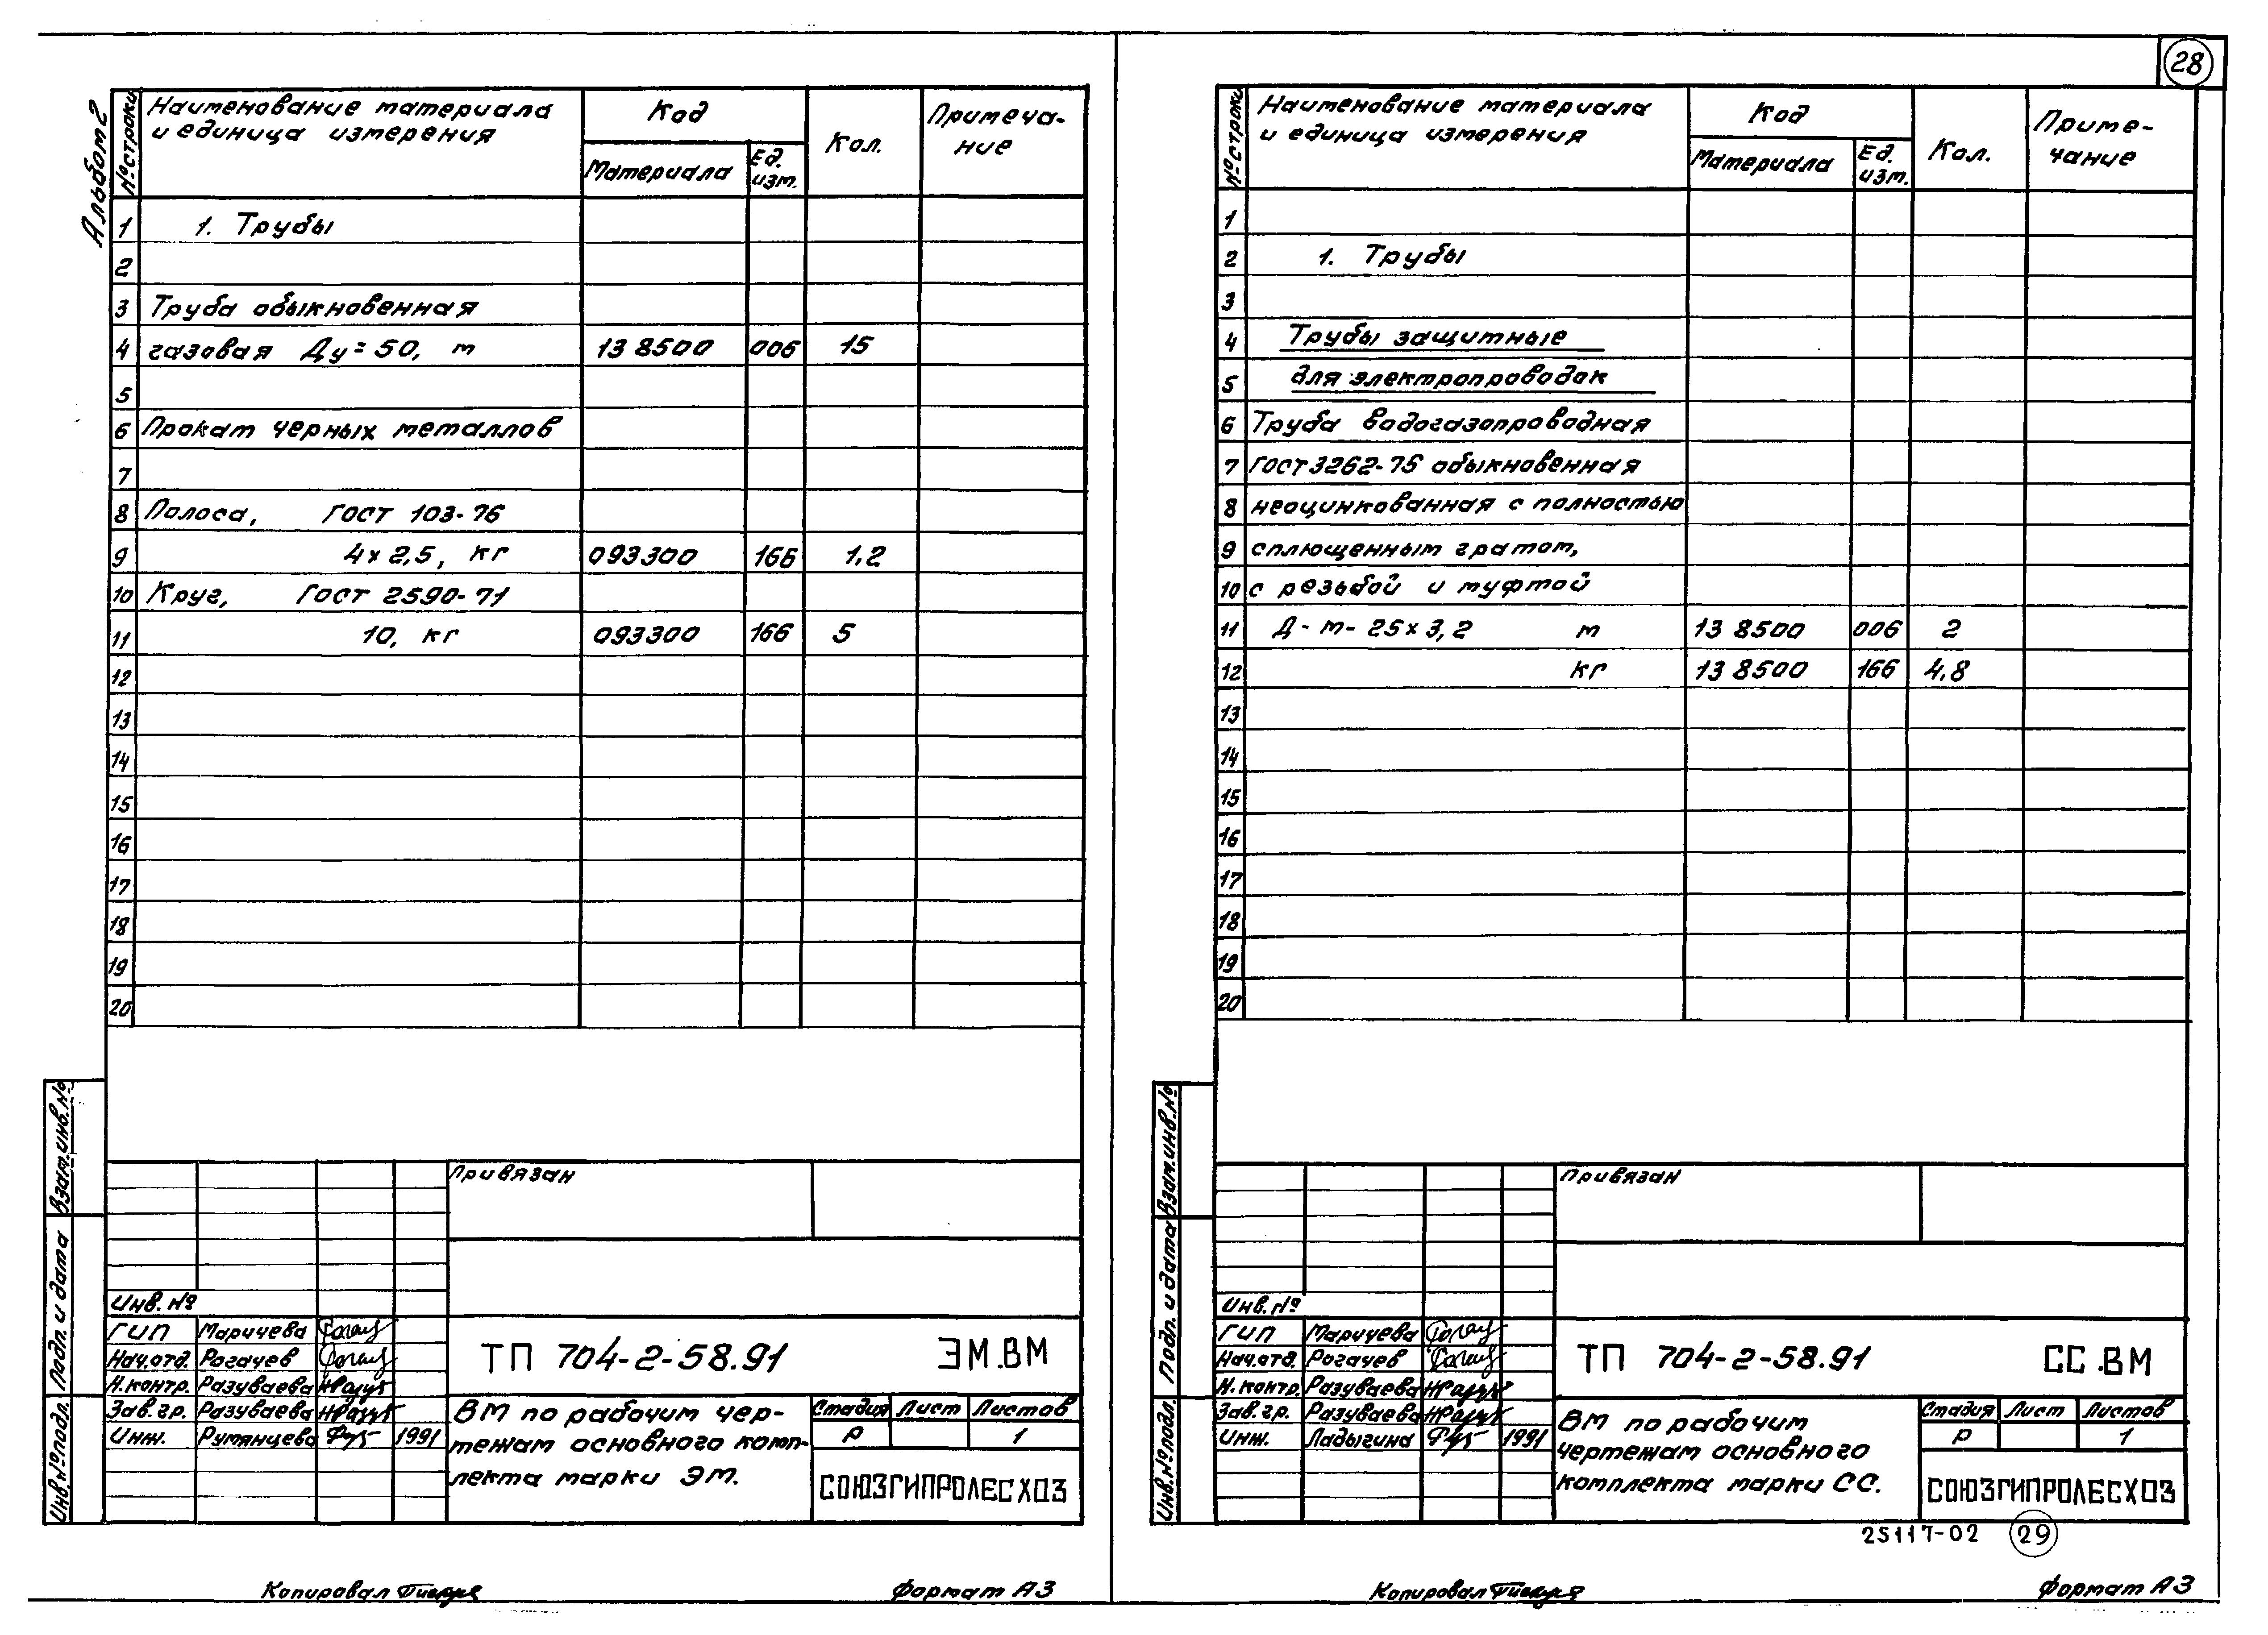 28
Альбом 2
№ строки
Наименование материала
и единица измерения
Код
Материала
Ед.
изм.
Кол.
Примеча-
ние
1 1. Трубы
2
3 Труба обыкновенная
4 газовая Ду=50, м 13 8500 006 15
5
6 Прокат черных металлов
7
8 Полоса, ГОСТ 103-76
9 4х2,5, кг 093300 166 1,2
10 Круг, ГОСТ 2590-71
11 10, кг 093300 166 5
12
13
14
15
16
17
18
19
20
Взам.инв.№
Подп. и дата
Инв.№подл.
Привязан
Инв. №
ГИП Маричева
Нач.отд. Рогачев
Н.контр. Разуваева
Зав.гр. Разуваева
Инж. Румянцева 1991
ТП 704-2-58.91 ЭМ.ВМ
ВМ по рабочим чер-
тежам основного комп-
лекта марки ЭМ.
Стадия Лист Листов
Р 1
СОЮЗГИПРОЛЕСХОЗ
Копировал
Формат А3
№ строки
Наименование материала
и единица измерения
Код
Материала
Ед.
изм.
Кол.
Приме-
чание
1
2 1. Трубы
3
4 Трубы защитные
5 для электропроводок
6 Труба водогазопроводная
7 ГОСТ 3262-75 обыкновенная
8 неоцинкованная с полностью
9 сплющенным гратом,
10 с резьбой и муфтой
11 Д-м-25х3,2 м 13 8500 006 2
12 кг 13 8500 166 4,8
13
14
15
16
17
18
19
20
Взам.инв.№
Подп. и дата
Инв.№подл.
Привязан
Инв. №
ГИП Маричева
Нач.отд. Рогачев
Н.контр. Разуваева
Зав.гр. Разуваева
Инж. Ладыгина 1991
ТП 704-2-58.91 СС.ВМ
ВМ по рабочим
чертежам основного
комплекта марки СС.
Стадия Лист Листов
Р 1
СОЮЗГИПРОЛЕСХОЗ
25117-02 29
Копировал
Формат А3